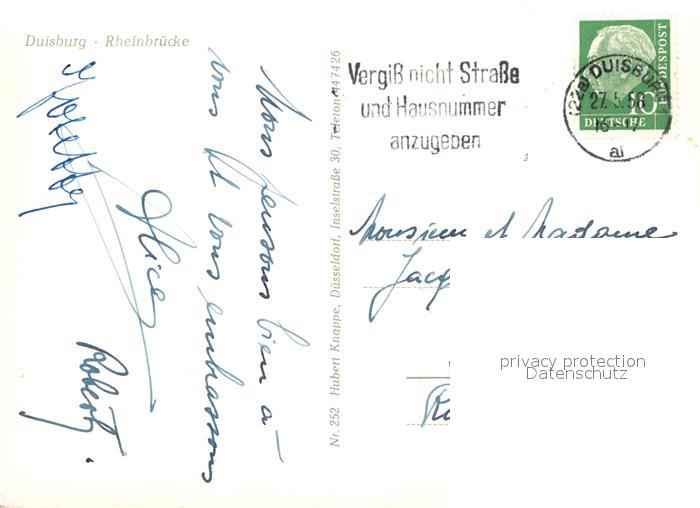 Duisburg · Rheinbrücke
Vergiß nicht Straße
und Hausnummer
anzugeben
(22a) DUISBURG
27.5.58
al
DEUTSCHE BUNDESPOST
10
Nous pensons bien à
vous et vous embrassons
Alice
Robert.
Nr. 252 Hubert Knappe, Düsseldorf, Inselstraße 30, Telefon 447426
Monsieur et Madame
Jacq
privacy protection
Datenschutz